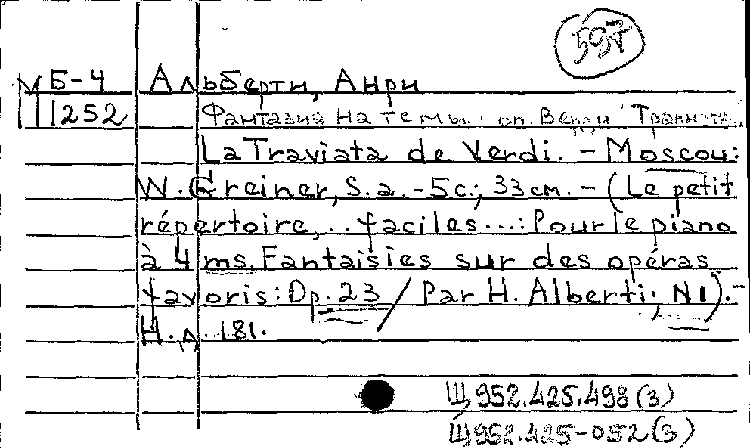 597
М Б-4 Альберти, Анри
1252 Фантазия на темы оп. Верди "Травиата"
La Traviata de Verdi. - Moscou:
W. Greiner, S.a. - 5с.; 33см. - (Le petit
répertoire,.. faciles...: Pour le piano
à 4 ms. Fantaisies sur des opéras
favoris: Op. 23 / Par H. Alberti; N1). -
Н.д. 181.
Щ 952.425.498(3)
Щ952.425-052(3)